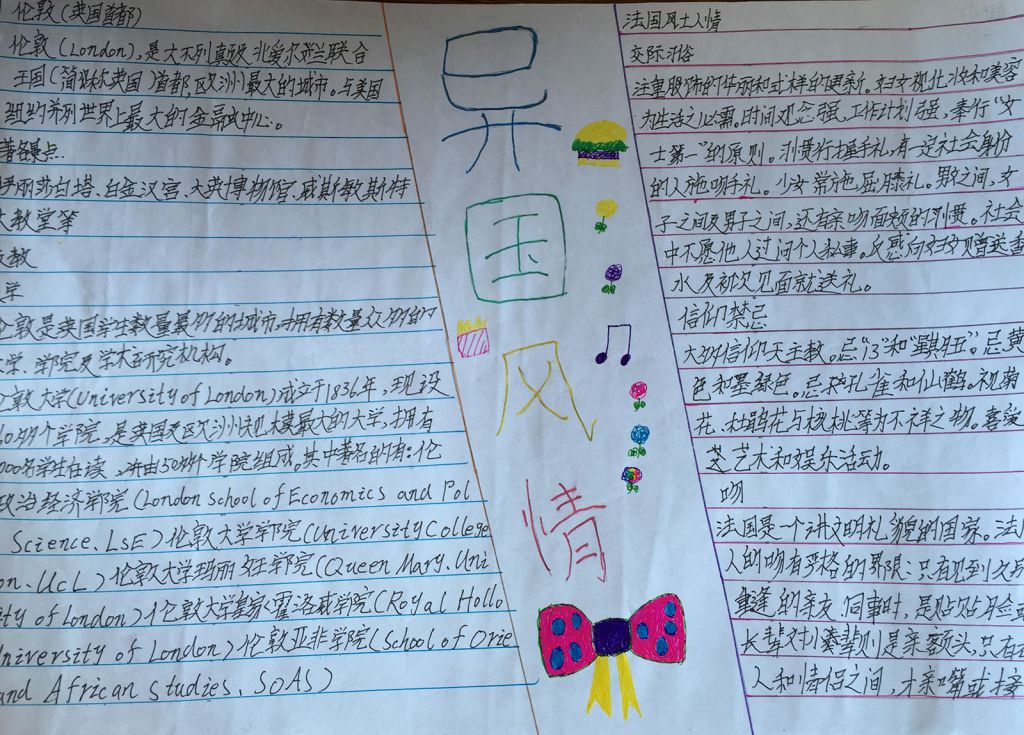 伦敦(英国首都)
伦敦(London),是大不列颠及北爱尔兰联合
王国(简称英国)首都,欧洲最大的城市。与美国
纽约并列世界上最大的金融中心。
著名景点
丽莎白塔、白金汉宫、大英博物馆、威斯敏斯特
大教堂等
教
学
伦敦是英国学生数量最多的城市,拥有数量众多的
学、学院及学术研究机构。
伦敦大学(University of London)成立于1836年,现设
多个学院,是英国及欧洲规模最大的大学,拥有
000名学生在读,并由50多个学院组成。其中著名的有:伦
政治经济学院(London school of Economics and Pol
Science、LSE)伦敦大学学院(University College
on、UcL)伦敦大学玛丽女王学院(Queen Mary、Uni
ty of London)伦敦大学皇家霍洛威学院(Royal Hollo
University of London)伦敦亚非学院(School of Orie
and African Studies、SOAS)
异
国
风
情
法国风土人情
交际习俗
注重服饰的华丽和式样的更新。妇女视化妆和美容
为生活之必需。时间观念强,工作计划强,奉行“女
士第一”的原则。习惯行握手礼,有一定社会身份
的人施吻手礼。少女常施屈膝礼。男女之间,女
子之间及男子之间,还有亲吻面颊的习惯。社会
中不愿他人过问个人私事。反感向妇女赠送香
水及初次见面就送礼。
信仰禁忌
大多信仰天主教。忌“13”和“星期五”。忌黄
色和墨绿色。忌孔雀和仙鹤。视菊
花、杜鹃花与核桃等为不祥之物。喜爱
艺术和娱乐活动。
吻
法国是一个讲文明礼貌的国家。法
人的吻有严格的界限:只有见到久
重逢的亲友、同事时,是贴贴脸或
长辈对小辈则是亲额头,只有
人和情侣之间,才亲嘴或接